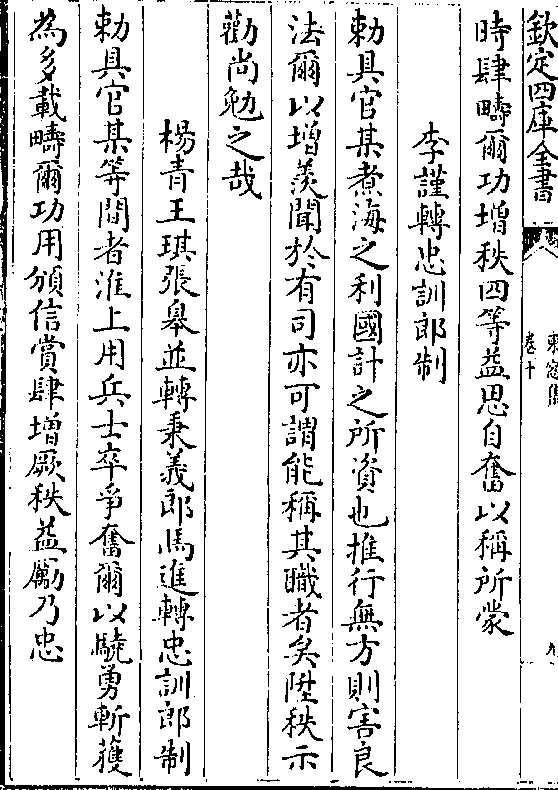 欽定四庫全書
東窓集
卷十
九
時肆疇爾功増秩四等益思自奮以稱所蒙
李謹轉忠訓郎制
勅具官某煮海之利國計之所資也推行無方則害良
法爾以増羨聞於有司亦可謂能稱其職者矣陞秩示
勸尚勉之哉
楊青王琪張皋並轉秉義郎馮進轉忠訓郎制
勅具官某等間者淮上用兵士卒爭奮爾以驍勇斬獲
為多載疇爾功用頒信賞肆増厥秩益勵乃忠